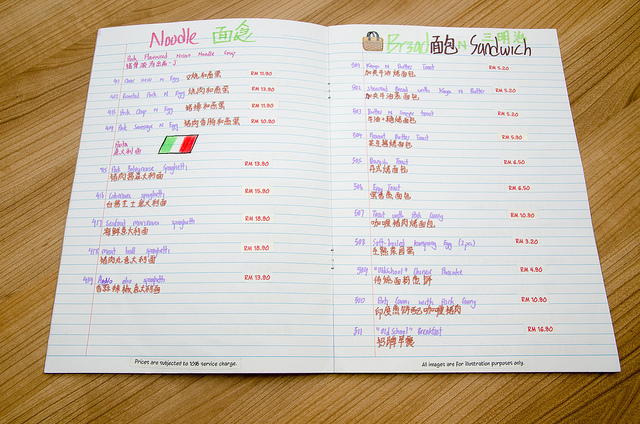 Noodle 面食
Pork Flavoured Noodle Soup
Char Siew N Egg RM 11.90
Roasted Pork N Egg 烧肉和煎蛋 RM 13.90
Pork Chop N Egg 猪排和煎蛋 RM 11.90
Pork Sausage N Egg 猪肉香肠和煎蛋 RM 10.90
Pasta
意大利面
Pork Bolognaise Spaghetti RM 13.90
猪肉酱意大利面
Carbonara spaghetti RM 15.90
Seafood marinara spaghetti RM 18.90
海鲜意大利面
Meat ball spaghetti RM 18.90
猪肉丸意大利面
Aglio olio spaghetti RM 13.90
香蒜辣椒意大利面
Prices are subjected to 10% service charge.
Bread 面包 N 三明治 Sandwich
501 Kaya N Butter Toast RM 5.20
加央牛油烤面包
502 Steamed Bread with Kaya N Butter RM 5.20
加央牛油蒸面包
503 Butter N Sugar toast RM 5.20
牛油+糖烤面包
504 Peanut Butter Toast RM 5.90
花生酱烤面包
505 RM 6.50
506 Egg Toast RM 6.50
507 Toast with Pork Curry RM 10.90
咖喱猪肉烤面包
508 Soft-boiled kampung Egg (2pcs) RM 3.20
509 "Oldschool" Chinese Pancake RM 4.90
510 with Pork Curry RM 10.90
印度煎饼配咖喱猪肉
511 "Old School" Breakfast RM 16.90
招牌早餐
All images are for illustration purposes only.